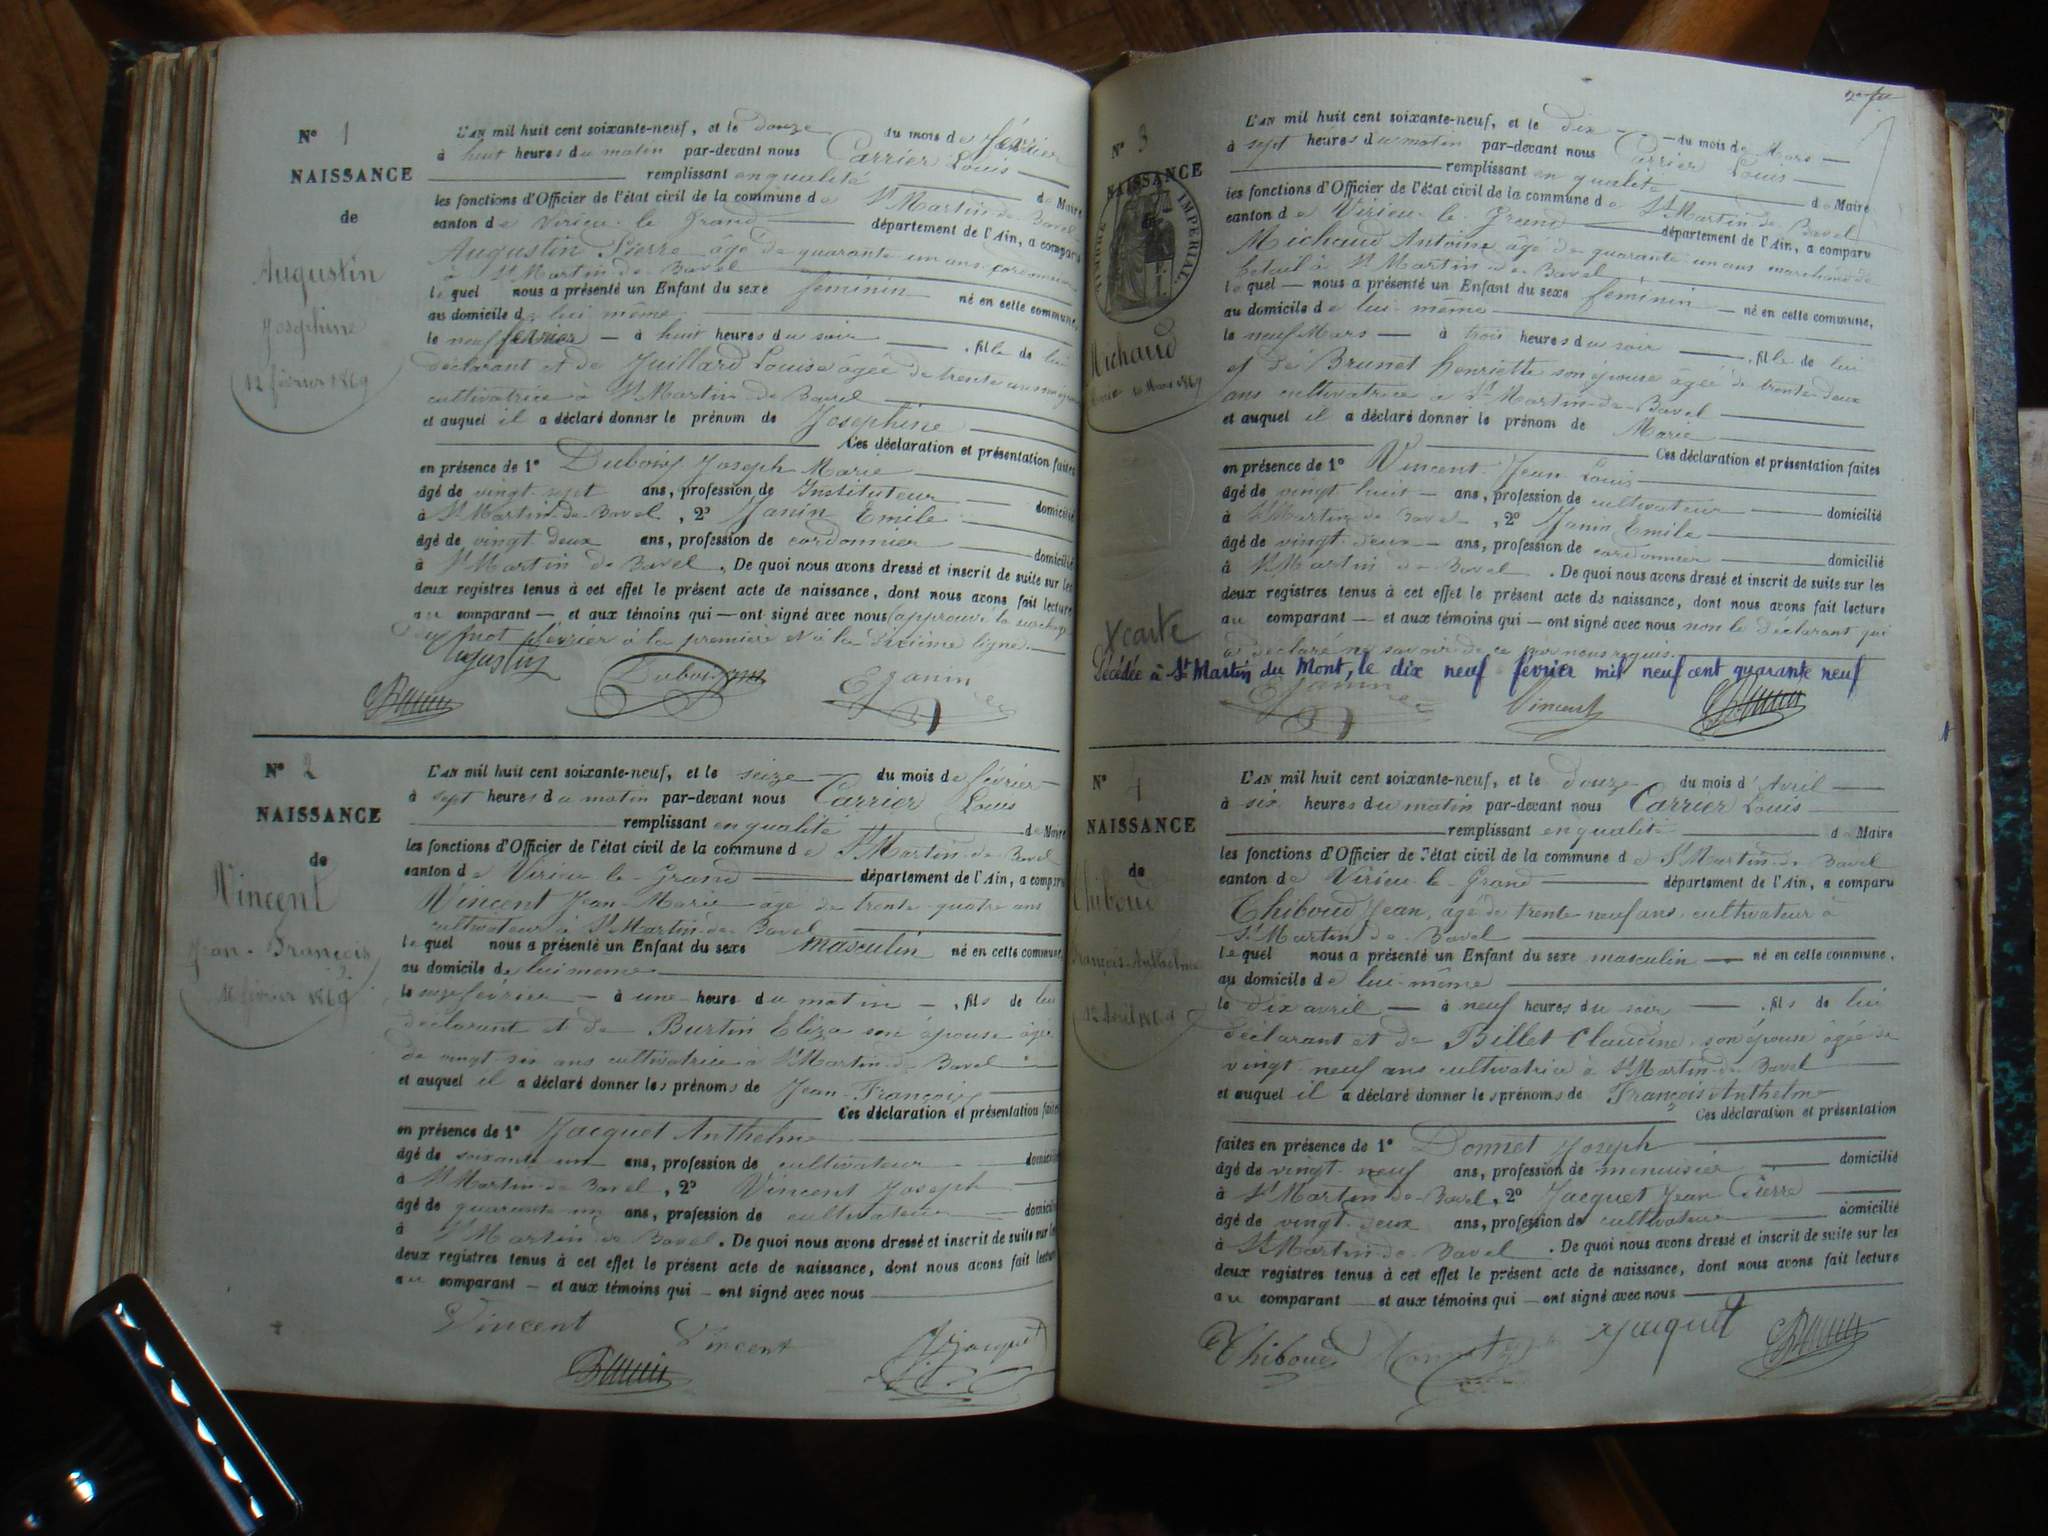 N° 1
NAISSANCE
de
Augustin
Joséphine
12 février 1869
L'AN mil huit cent soixante-neuf, et le douze du mois de février
à huit heures du matin par-devant nous Carrier Louis
remplissant en qualité de Maire
les fonctions d'Officier de l'état civil de la commune de St Martin-de-Bavel
canton de Virieu-le-Grand département de l'Ain, a comparu
Augustin Pierre âgé de quarante un ans cordonnier
à St Martin-de-Bavel
lequel nous a présenté un Enfant du sexe féminin né en cette commune,
au domicile de lui même
le neuf février à huit heures du soir , fille de lui
déclarant et de Juillard Louise agée de trente ans
cultivatrice à St Martin de Bavel
et auquel il a déclaré donner le prénom de Joséphine
Ces déclaration et présentation faites
en présence de 1° Dubois Joseph Marie
âgé de vingt-sept ans, profession de Instituteur domicilié
à St Martin-de-Bavel, 2° Janin Emile
âgé de vingt-deux ans, profession de cordonnier domicilié
à St Martin de Bavel. De quoi nous avons dressé et inscrit de suite sur les
deux registres tenus à cet effet le présent acte de naissance, dont nous avons fait lecture
au comparant — et aux témoins qui — ont signé avec nous (approuvé la surcharge
du mot février à la première et à la sixième ligne.
Augustin Dubois Janin
N° 2
NAISSANCE
de
Vincent
Jean-François
16 février 1869
L'AN mil huit cent soixante-neuf, et le seize du mois de février
à sept heures du matin par-devant nous Carrier Louis
remplissant en qualité de Maire
les fonctions d'Officier de l'état civil de la commune de St Martin-de-Bavel
canton de Virieu-le-Grand département de l'Ain, a comparu
Vincent Jean-Marie âgé de trente-quatre ans
cultivateur à St Martin-de-Bavel
lequel nous a présenté un Enfant du sexe masculin né en cette commune,
au domicile de lui même
le seize février — à une heure du matin —, fils de lui
déclarant et de Burtin Eliza son épouse âgée
de vingt-six ans cultivatrice à St Martin-de-Bavel
et auquel il a déclaré donner les prénoms de Jean-François
Ces déclaration et présentation faites
en présence de 1° Jacquet Anthelme
âgé de soixante un ans, profession de cultivateur domicilié
à St Martin-de-Bavel, 2° Vincent Joseph
âgé de quarante un ans, profession de cultivateur domicilié
à St Martin de Bavel. De quoi nous avons dressé et inscrit de suite sur les
deux registres tenus à cet effet le présent acte de naissance, dont nous avons fait lecture
au comparant — et aux témoins qui — ont signé avec nous
Vincent Vincent Jacquet
N° 3
NAISSANCE
TIMBRE IMPERIAL
Michaud
Marie 10 Mars 1869
L'AN mil huit cent soixante-neuf, et le dix du mois de Mars
à sept heures du matin par-devant nous Carrier Louis
remplissant en qualité de Maire
les fonctions d'Officier de l'état civil de la commune de St Martin-de-Bavel
canton de Virieu-le-Grand département de l'Ain, a comparu
Michaud Antoine âgé de quarante un ans marchand de
bétail à St Martin-de-Bavel
lequel — nous a présenté un Enfant du sexe féminin — né en cette commune,
au domicile de lui-même
le neuf Mars — à trois heures du soir , fille de lui
et de Brunet Henriette son épouse âgée de trente-deux
ans cultivatrice à St Martin-de-Bavel
et auquel il a déclaré donner le prénom de Marie
Ces déclaration et présentation faites
en présence de 1° Vincent Jean Louis
âgé de vingt huit — ans, profession de cultivateur domicilié
à St Martin de Bavel, 2° Janin Emile
âgé de vingt-deux — ans, profession de cordonnier domicilié
à St Martin de Bavel. De quoi nous avons dressé et inscrit de suite sur les
deux registres tenus à cet effet le présent acte de naissance, dont nous avons fait lecture
au comparant — et aux témoins qui — ont signé avec nous non le déclarant qui
a déclaré ne savoir de ce par nous requis.
Décédée à St Martin du Mont, le dix neuf février mil neuf cent quarante neuf
Janin Vincent
N° 4
NAISSANCE
de
Thiboud
François-Anthelme
12 Avril 1869
L'AN mil huit cent soixante-neuf, et le douze du mois d'Avril
à six heures du matin par-devant nous Carrier Louis
remplissant en qualité de Maire
les fonctions d'Officier de l'état civil de la commune de St Martin-de-Bavel
canton de Virieu-le-Grand département de l'Ain, a comparu
Thiboud Jean, agé de trente neuf ans, cultivateur à
St Martin-de-Bavel
lequel nous a présenté un Enfant du sexe masculin — né en cette commune,
au domicile de lui-même
le dix avril — à neuf heures du soir , fils de lui
déclarant et de Billet Claudine, son épouse âgée de
vingt-neuf ans cultivatrice à St Martin-de-Bavel
et auquel il a déclaré donner les prénoms de François Anthelme
Ces déclaration et présentation
faites en présence de 1° Donnet Joseph
âgé de vingt-neuf ans, profession de menuisier domicilié
à St Martin-de-Bavel, 2° Jacquet Jean Pierre
âgé de vingt-deux ans, profession de cultivateur domicilié
à St Martin-de-Bavel. De quoi nous avons dressé et inscrit de suite sur les
deux registres tenus à cet effet le présent acte de naissance, dont nous avons fait lecture
au comparant — et aux témoins qui — ont signé avec nous
Thiboud Donnet Jacquet